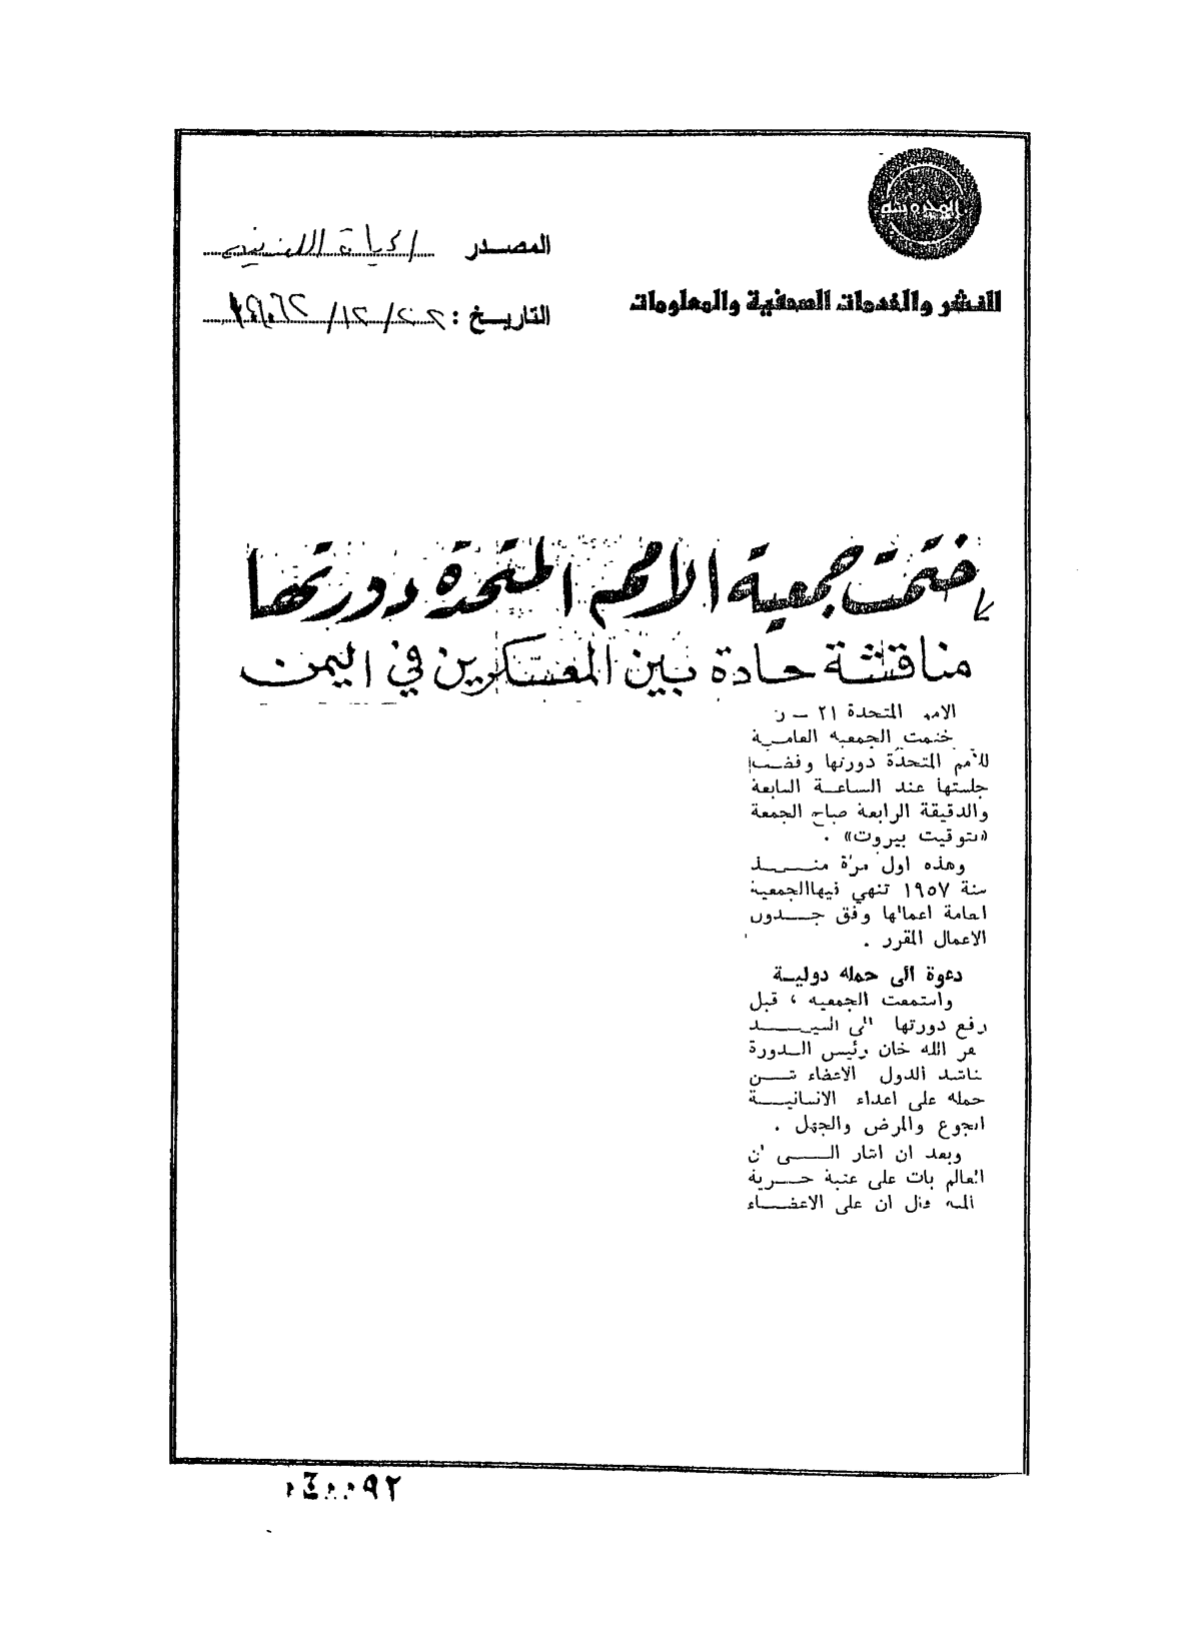 المدوسة
للنشر والخدمات الصحفية والمعلومات
المصدر الحياة اللندنية
التاريخ : ٢٢/١٢/١٩٦٢
ختمت جمعية الامم المتحدة دورتها
مناقشة حادة بين المعسكرين في اليمن
الامم المتحدة ٢١ – ر
ختمت الجمعية العامة
للأمم المتحدة دورتها وفضت
جلستها عند الساعة السابعة
والدقيقة الرابعة صباح الجمعة
«بتوقيت بيروت» .
وهذه اول مرة منذ
سنة ١٩٥٧ تنهي فيها الجمعية
العامة اعمالها وفق جدول
الاعمال المقرر .
دعوة الى حملة دولية
واستمعت الجمعية ، قبل
رفع دورتها الى السيد
ظفر الله خان رئيس الدورة
ناشد الدول الاعضاء شن
حملة على اعداء الانسانية
الجوع والمرض والجهل .
وبعد ان اشار الى ان
العالم بات على عتبة حرية
قال ان على الاعضاء
٠٤٠٠٩٢